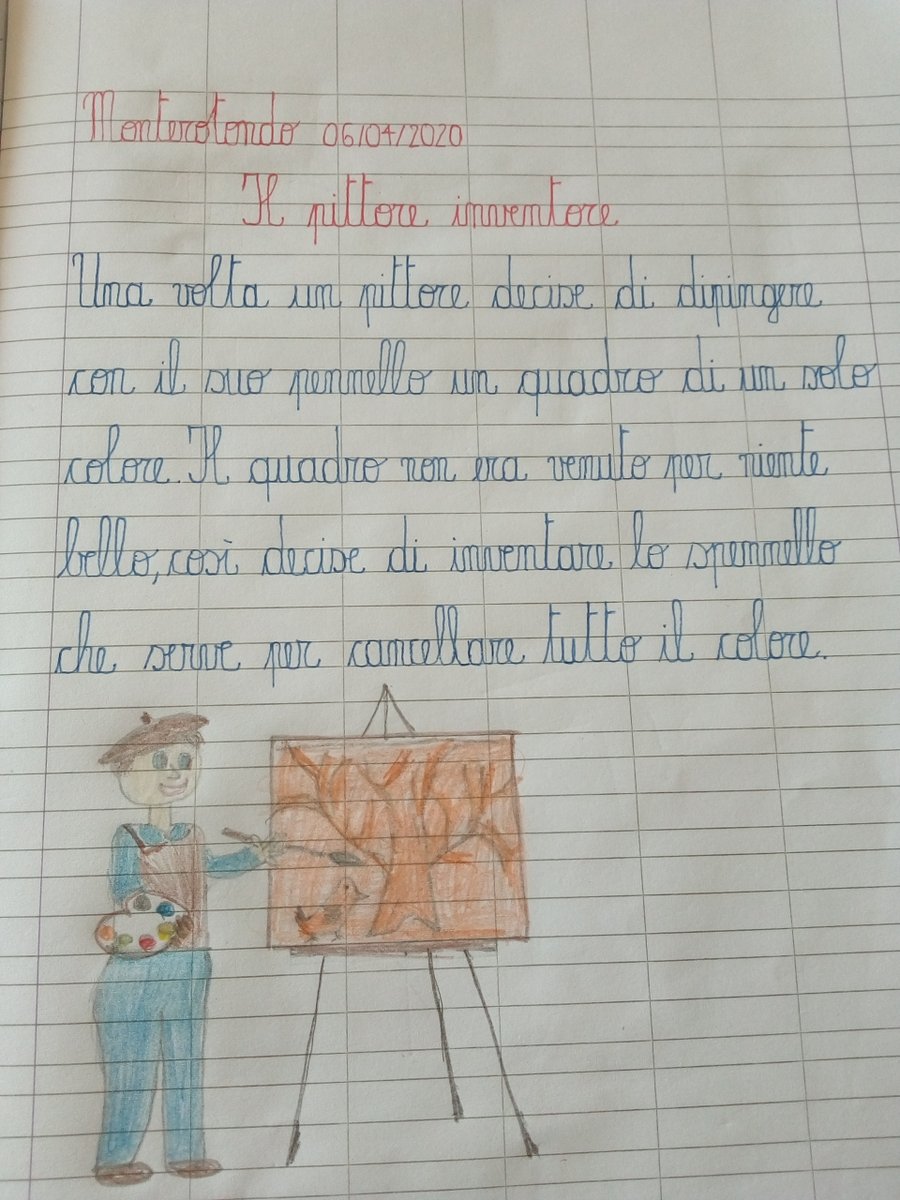 Monterotondo 06/04/2020
Il pittore inventore
Una volta un pittore decise di dipingere
con il suo pennello un quadro di un solo
colore. Il quadro non era venuto per niente
bello, così decise di inventare lo spennello
che serve per cancellare tutto il colore.